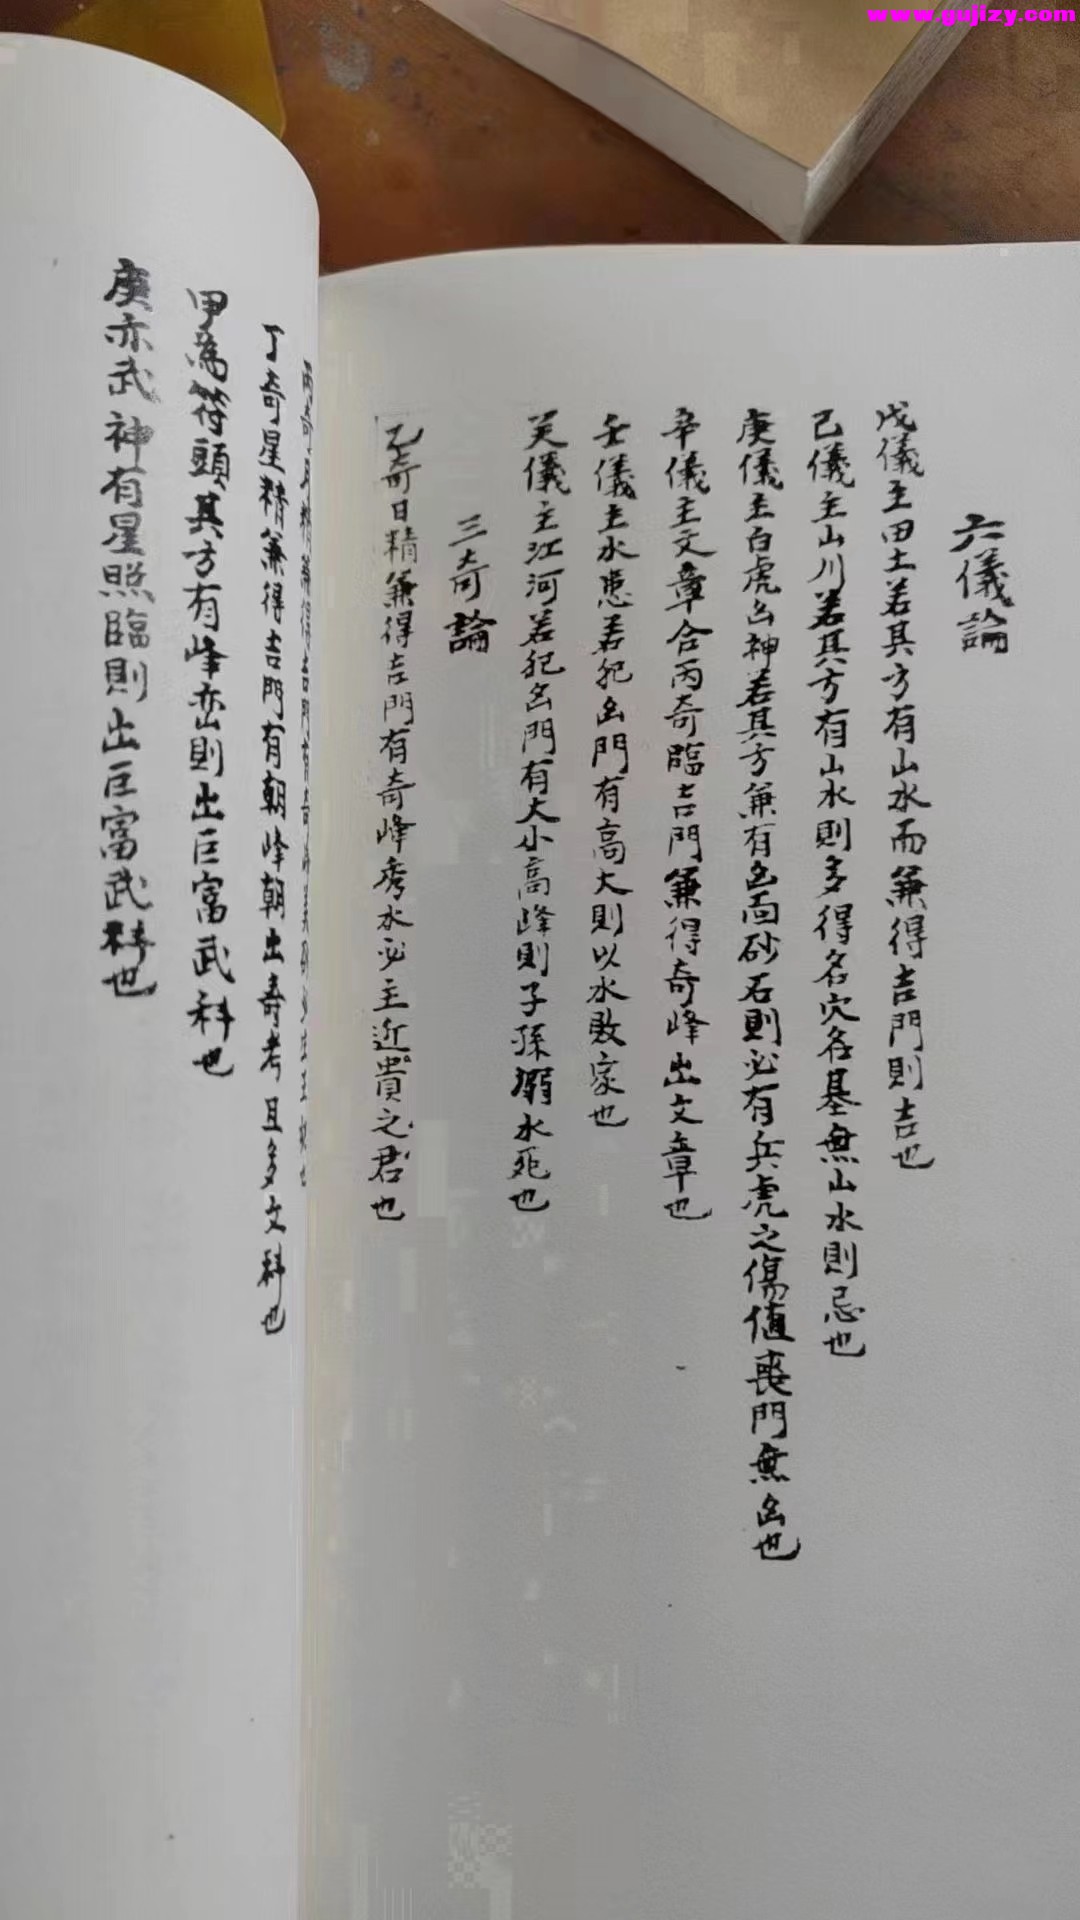 www.gujizy.com
六儀論
戊儀主田土若其方有山水而兼得吉門則吉也
己儀主山川若其方有山水則多得名穴名基無山水則忌也
庚儀主白虎凶神若其方兼有凶面砂石則必有兵虎之傷値喪門無凶也
辛儀主文章合丙奇臨吉門兼得奇峰出文章也
壬儀主水患若犯凶門有高大則以水敗家也
癸儀主江河若犯凶門有大小高峰則子孫溺水死也
三奇論
乙奇日精兼得吉門有奇峰秀水必主近貴之君也
丙奇月精兼得吉門有奇峰
丁奇星精兼得吉門有朝峰朝出奇考且多文科也
甲為符頭其方有峰巒則出巨富武科也
庚亦武神有星照臨則出巨富武科也